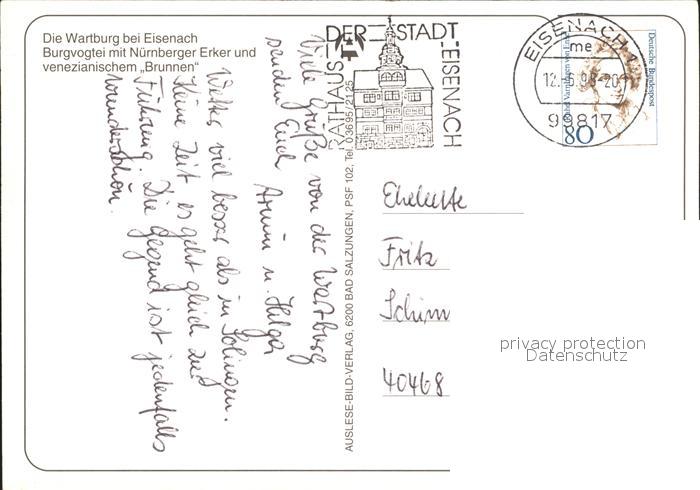 Die Wartburg bei Eisenach
Burgvogtei mit Nürnberger Erker und
venezianischem „Brunnen“
RATHAUS DER STADT EISENACH
EISENACH 1
me
12.-6.98-20
99817
Deutsche Bundespost
80
Viele Grüße von der Wartburg
senden Euch
Armin u. Helga
Wetter viel besser als in Solingen.
Keine Zeit es geht gleich zur
Führung. Die Gegend ist jedenfalls
wunderschön.
AUSLESE-BILD-VERLAG, 6200 BAD SALZUNGEN, PSF 102, Tel. 03695/2125
Eheleute
Fritz
Schirm
40468
privacy protection
Datenschutz